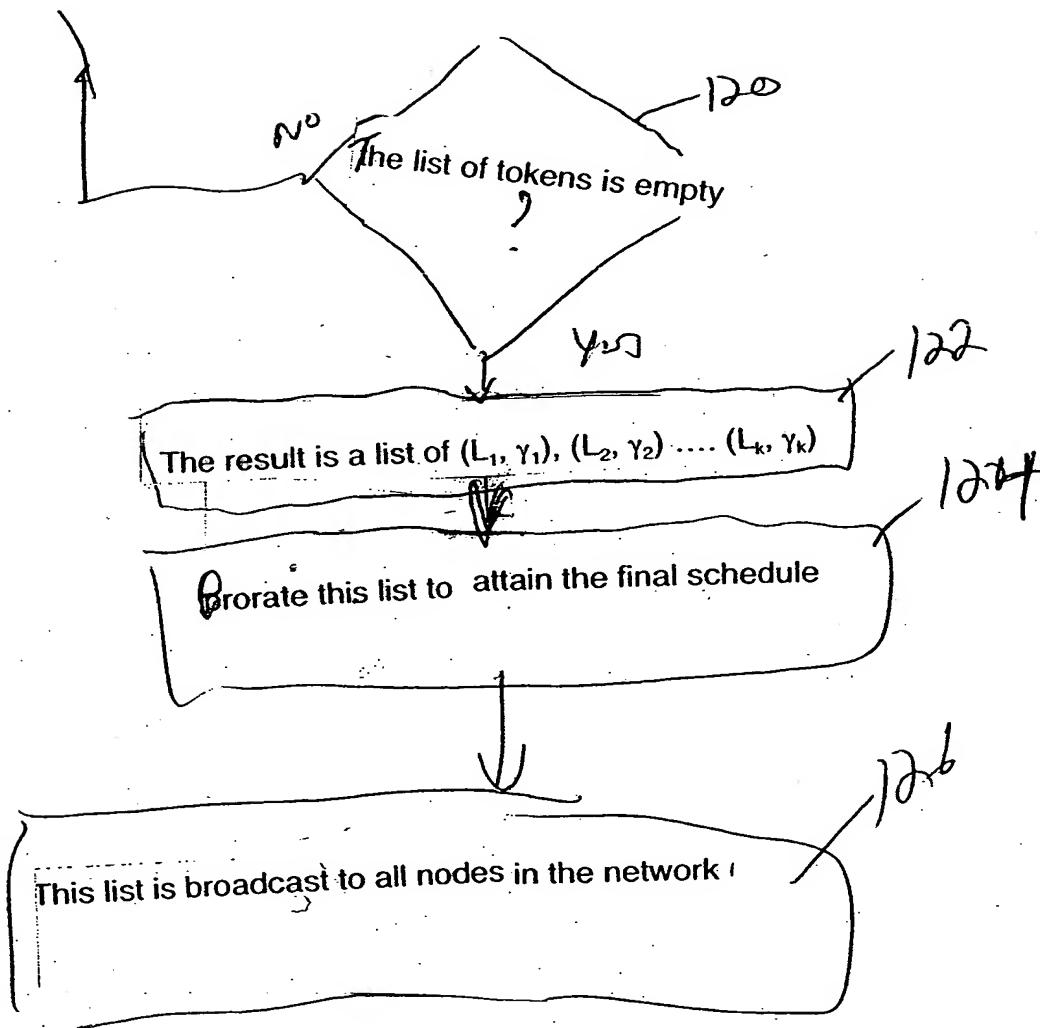 120
No
The list of tokens is empty
?
Yes
122
The result is a list of (L₁, γ₁), (L₂, γ₂) .... (Lₖ, γₖ)
124
Prorate this list to attain the final schedule
126
This list is broadcast to all nodes in the network